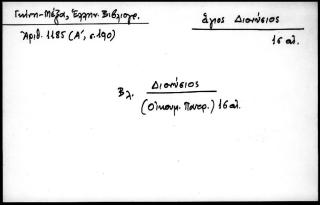 Γκίνη-Μέξα, Ἑλλην. Βιβλιογρ.
Ἀριθ. 1185 (Α', σ. 190)
ἅγιος Διονύσιος
16 αἰ.
Βλ. Διονύσιος
(Οἰκουμ. Πατρ.) 16 αἰ.